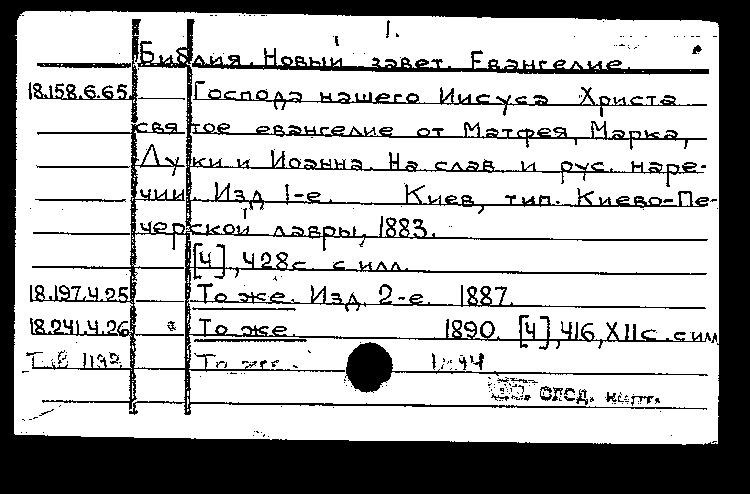 1.
Библия. Новый завет. Евангелие.
18.158.6.65. Господа нашего Иисуса Христа
святое евангелие от Матфея, Марка,
Луки и Иоанна. На слав. и рус. наре-
чии. Изд. 1-е. Киев, тип. Киево-Пе-
черской лавры, 1883.
[4], 428с. с илл.
18.197.4.25 То же. Изд. 2-е. 1887.
18.241.4.26 * То же. 1890. [4], 416, XIIс. с илл
То же. 1894
след.